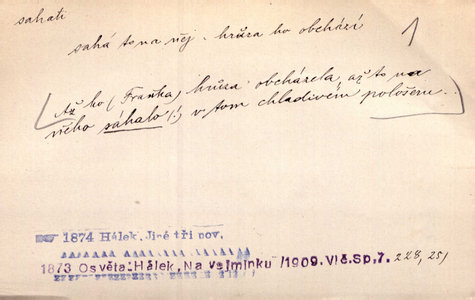 sahati
sahá to na něj . hrůza ho obchází
1
Až ho (Franka) hrůza obcházela, až to na
něho sáhalo (!) v tom chladivém pološeru ..
1874 Hálek. Jiné tři nov.
1873 Osvěta: Hálek, Na vejminku /1909. Vlč. Sp, 7. 228, 251